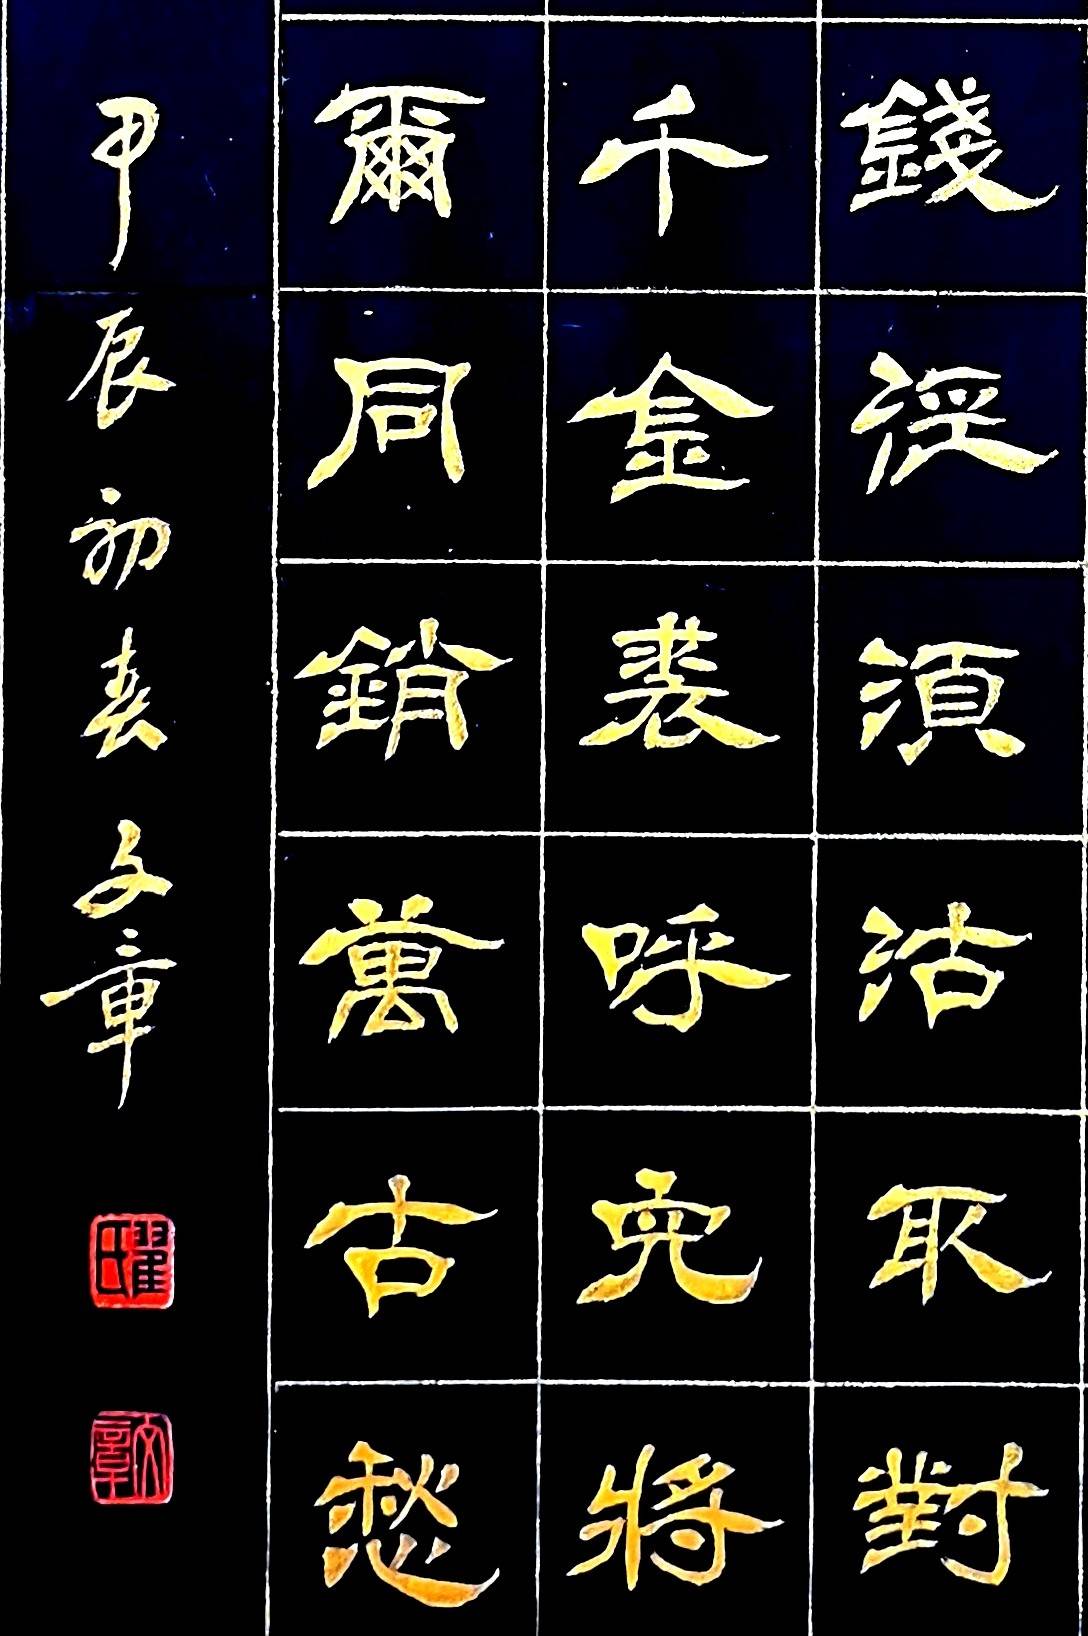 錢徑須沽取對
千金裘呼兒將
爾同銷萬古愁
甲辰初春文章
翟氏
文章